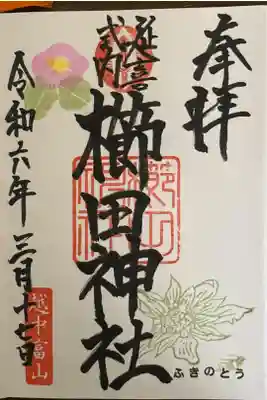 奉拝
延喜式内
櫛田神社
令和六年三月十七日
越中富山
ふきのとう